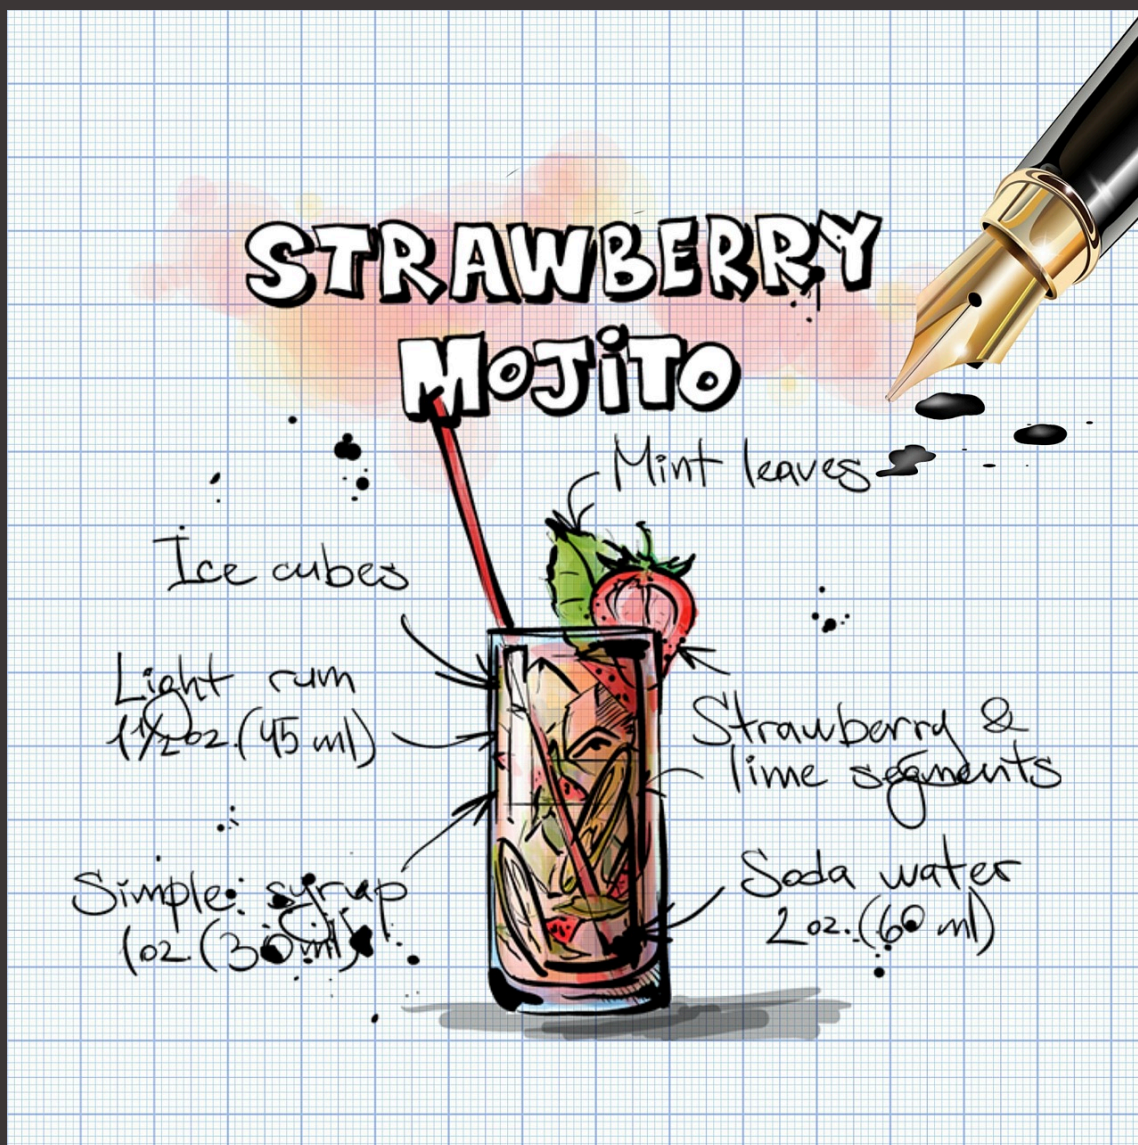 STRAWBERRY
MOJiTO
Mint leaves
Ice cubes
Light rum
1 1/2 oz. (45 ml)
Strawberry &
lime segments
Simple syrup
1 oz. (30 ml)
Soda water
2 oz. (60 ml)